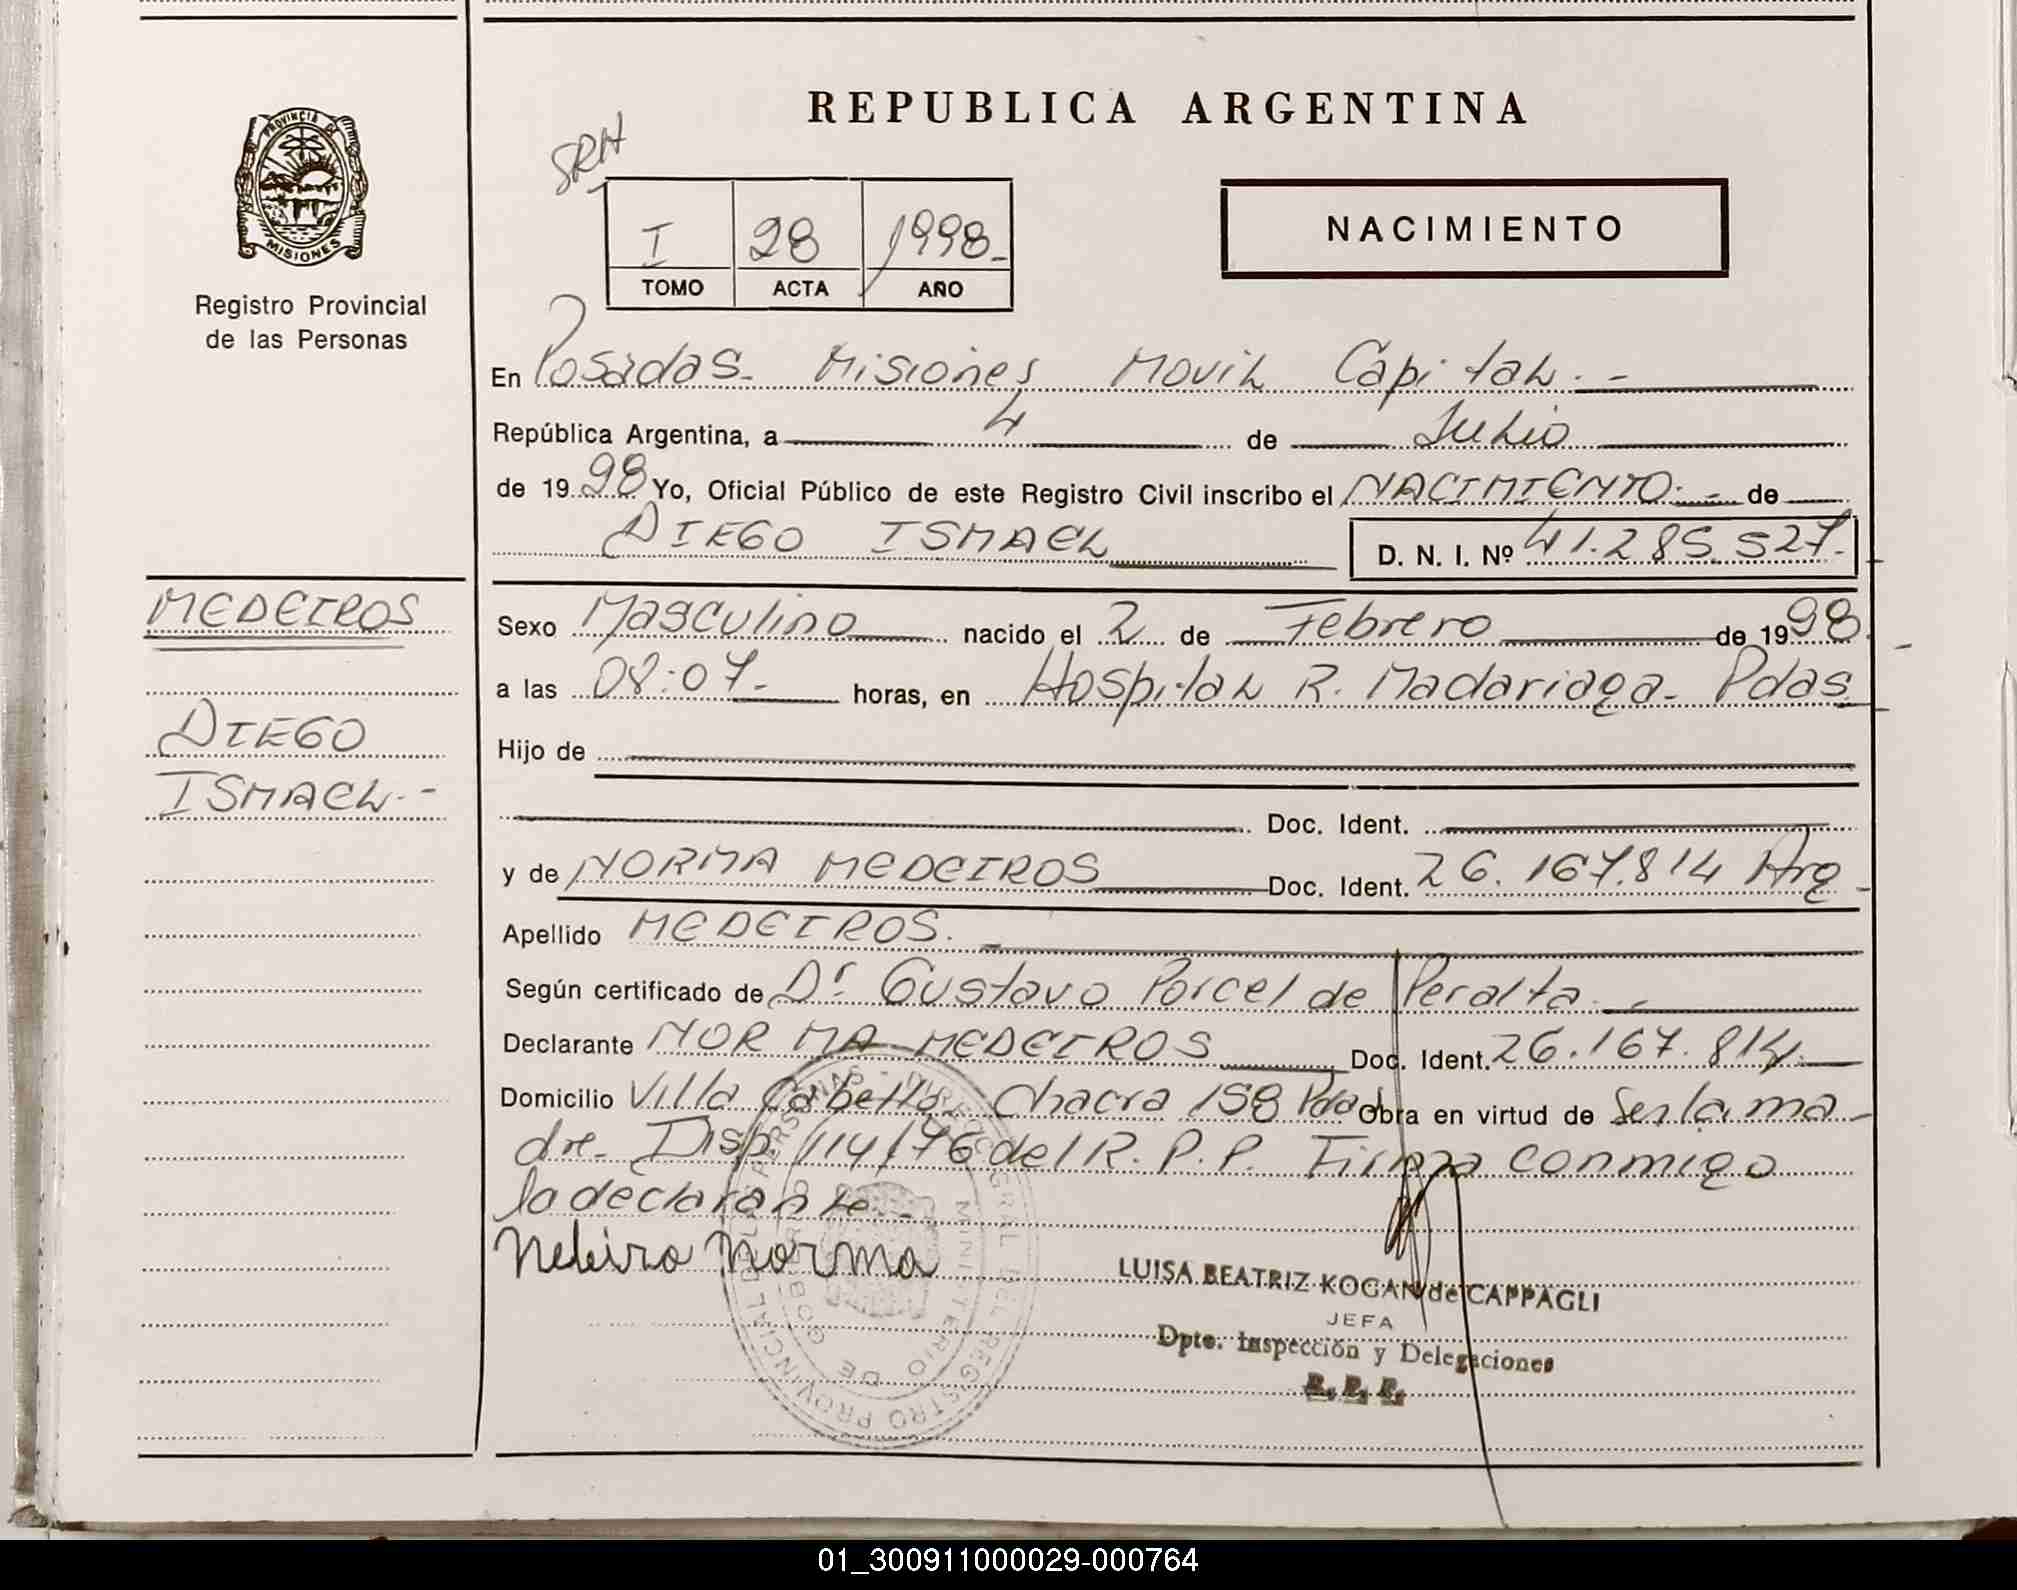 REPUBLICA ARGENTINA
PROVINCIA DE
MISIONES
Registro Provincial
de las Personas
SRH
I 28 1998.-
TOMO ACTA AÑO
NACIMIENTO
En Posadas- Misiones Movil Capital.-
República Argentina, a 4 de Julio
de 1998 Yo, Oficial Público de este Registro Civil inscribo el NACIMIENTO.- de
DIEGO ISMAEL D. N. I. Nº 41.285.527.-
MEDEIROS
DIEGO
ISMAEL.-
Sexo Masculino nacido el 2 de Febrero de 1998.
a las 08:07.- horas, en Hospital R. Madariaga- Pdas.
Hijo de
Doc. Ident.
y de NORMA MEDEIROS Doc. Ident. 26.167.814 Arg-
Apellido MEDEIROS.-
Según certificado de Dr Gustavo Porcel de Peralta.-
Declarante NORMA MEDEIROS Doc. Ident. 26.167.814.-
Domicilio Villa Cabello, Chacra 158 Pdas Obra en virtud de Ser la ma-
dre- Disp. 114/76 del R. P. P. Firma conmigo
la declarante.-
Norma
LUISA BEATRIZ KOGAN de CAPPAGLI
JEFA
Dpto. Inspección y Delegaciones
R. P. P.
DIRECC GRAL DEL REGISTRO PROVINCIAL DE LAS PERSONAS -
MINISTERIO DE GOBIERNO
01_300911000029-000764